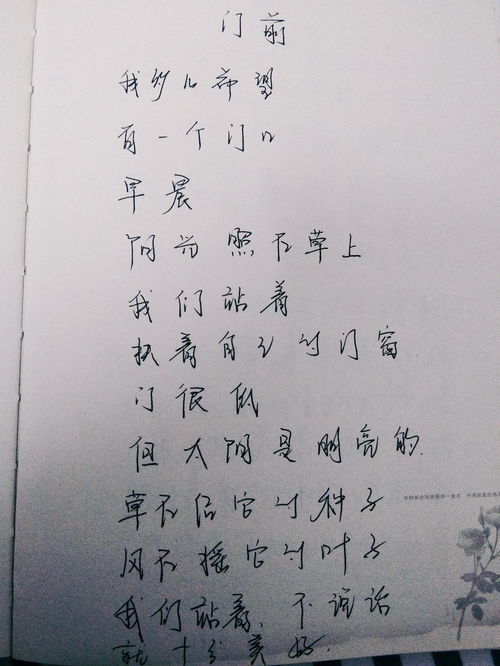 门前
我多么希望
有一个门口
早晨
阳光照在草上
我们站着
扶着自己的门窗
门很低
但太阳是明亮的
草在结它的种子
风在摇它的叶子
我们站着,不说话
就十分美好.